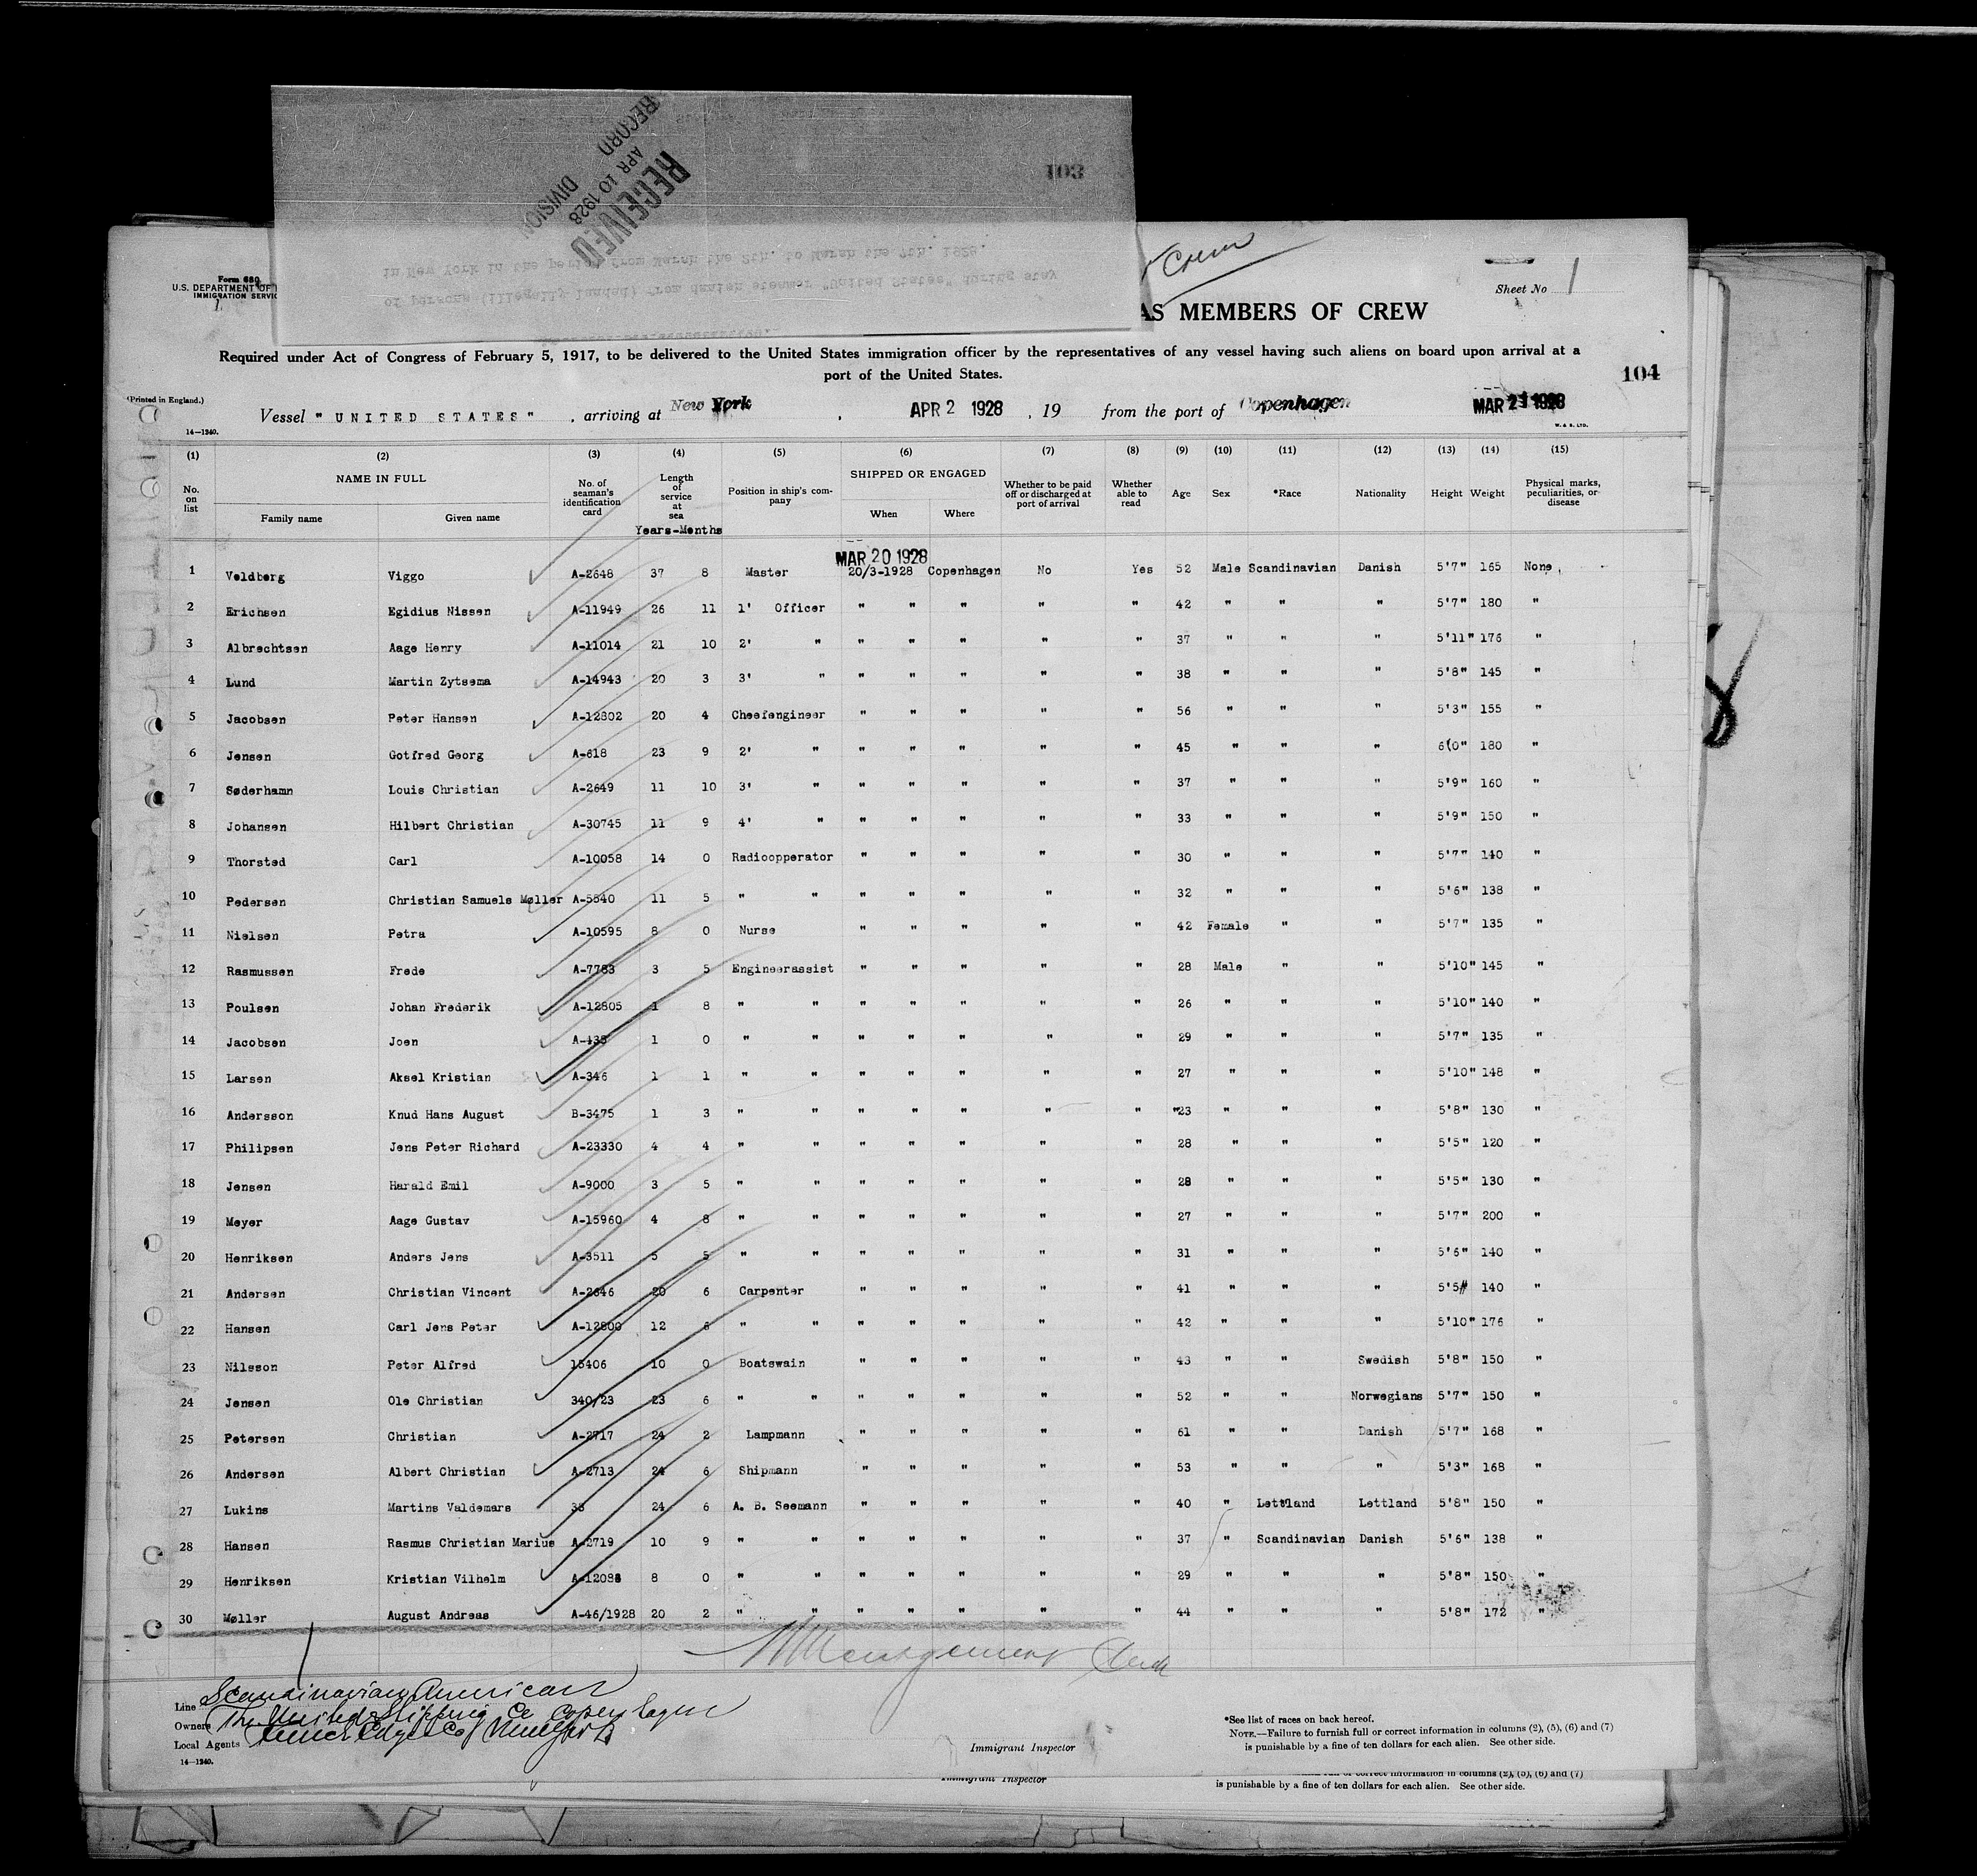 RECEIVED
APR 10 1928
RECORD
DIVISION
103
of persons (illegally landed) from danish steamer "United States" during stay
in New York in the period from Marsh the 2th. to Marsh the 7th. 1928.
Crew
Form 680
U.S. DEPARTMENT OF
IMMIGRATION SERVIC
Sheet No 1
AS MEMBERS OF CREW
Required under Act of Congress of February 5, 1917, to be delivered to the United States immigration officer by the representatives of any vessel having such aliens on board upon arrival at a
port of the United States.
104
(Printed in England.)
Vessel "UNITED STATES", arriving at New York, APR 2 1928, 19 from the port of Copenhagen MAR 1928
14—1240.
W. & S. LTD.
(1) (2) (3) (4) (5) (6) (7) (8) (9) (10) (11) (12) (13) (14) (15)
No. on list NAME IN FULL Family name Given name No. of seaman's identification card Length of service at sea Years-Months Position in ship's company SHIPPED OR ENGAGED When Where Whether to be paid off or discharged at port of arrival Whether able to read Age Sex *Race Nationality Height Weight Physical marks, peculiarities, or disease
MAR 20 1928
1 Veldberg Viggo A-2648 37 8 Master 20/3-1928 Copenhagen No Yes 52 Male Scandinavian Danish 5'7" 165 None
2 Erichsen Egidius Nissen A-11949 26 11 1' Officer " " " " " 42 " " " 5'7" 180 "
3 Albrechtsen Aage Henry A-11014 21 10 2' " " " " " " 37 " " " 5'11" 176 "
4 Lund Martin Zytsema A-14943 20 3 3' " " " " " " 38 " " " 5'8" 145 "
5 Jacobsen Peter Hansen A-12802 20 4 Cheefengineer " " " " " 56 " " " 5'3" 155 "
6 Jensen Gotfred Georg A-618 23 9 2' " " " " " " 45 " " " 6'0" 180 "
7 Søderhamn Louis Christian A-2649 11 10 3' " " " " " " 37 " " " 5'9" 160 "
8 Johansen Hilbert Christian A-30745 11 9 4' " " " " " " 33 " " " 5'9" 150 "
9 Thorsted Carl A-10058 14 0 Radioopperator " " " " " 30 " " " 5'7" 140 "
10 Pedersen Christian Samuels Møller A-5540 11 5 " " " " " " " 32 " " " 5'6" 138 "
11 Nielsen Petra A-10595 8 0 Nurse " " " " " 42 Female " " 5'7" 135 "
12 Rasmussen Frede A-7783 3 5 Engineerassist " " " " " 28 Male " " 5'10" 145 "
13 Poulsen Johan Frederik A-12805 1 8 " " " " " " " 26 " " " 5'10" 140 "
14 Jacobsen Joen A-435 1 0 " " " " " " " 29 " " " 5'7" 135 "
15 Larsen Aksel Kristian A-346 1 1 " " " " " " " 27 " " " 5'10" 148 "
16 Andersson Knud Hans August B-3475 1 3 " " " " " " " 23 " " " 5'8" 130 "
17 Philipsen Jens Peter Richard A-23330 4 4 " " " " " " " 28 " " " 5'5" 120 "
18 Jensen Harald Emil A-9000 3 5 " " " " " " " 28 " " " 5'5" 130 "
19 Meyer Aage Gustav A-15960 4 8 " " " " " " " 27 " " " 5'7" 200 "
20 Henriksen Anders Jens A-3511 5 5 " " " " " " " 31 " " " 5'6" 140 "
21 Andersen Christian Vincent A-2646 20 6 Carpenter " " " " " 41 " " " 5'5" 140 "
22 Hansen Carl Jens Peter A-12800 12 6 " " " " " " " 42 " " " 5'10" 176 "
23 Nilsson Peter Alfred 15406 10 0 Boatswain " " " " " 43 " " Swedish 5'8" 150 "
24 Jensen Ole Christian 340/23 23 6 " " " " " " " 52 " " Norwegians 5'7" 150 "
25 Petersen Christian A-2717 24 2 Lampmann " " " " " 61 " " Danish 5'7" 168 "
26 Andersen Albert Christian A-2713 24 6 Shipmann " " " " " 53 " " " 5'3" 168 "
27 Lukins Martins Valdemars 24 6 A. B. Seemann " " " " " 40 " Lettland Lettland 5'8" 150 "
28 Hansen Rasmus Christian Marius A-2719 10 9 " " " " " " " 37 " Scandinavian Danish 5'6" 138 "
29 Henriksen Kristian Vilhelm A-12088 8 0 " " " " " " " 29 " " " 5'8" 150 "
30 Møller August Andreas A-46/1928 20 2 " " " " " " " 44 " " " 5'8" 172 "
Montgomery Clerk
Line Scandinavian American
Owners The United Shipping Co Copenhagen
Local Agents
14—1240.
Immigrant Inspector
*See list of races on back hereof.
NOTE.—Failure to furnish full or correct information in columns (2), (5), (6) and (7)
is punishable by a fine of ten dollars for each alien. See other side.
Immigrant Inspector
full or correct information in columns (2), (5), (6) and (7)
is punishable by a fine of ten dollars for each alien. See other side.